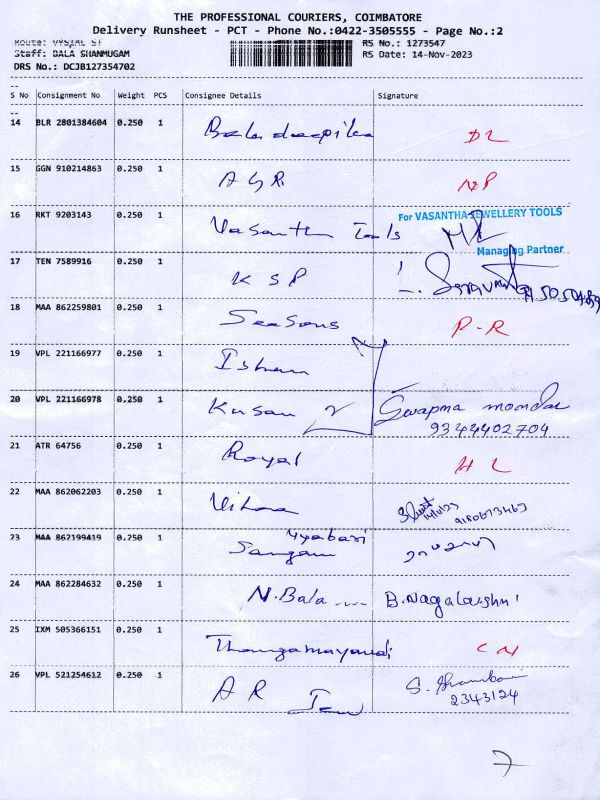 THE PROFESSIONAL COURIERS, COIMBATORE
Delivery Runsheet - PCT - Phone No.:0422-3505555 - Page No.:2
Staff: BALA SHANMUGAM
RS No.: 1273547
DRS No.: DCJB127354702
RS Date: 14-Nov-2023
S No Consignment No Weight PCS Consignee Details Signature
14 BLR 2801384604 0.250 1 Baladeepika DL
15 GGN 910214863 0.250 1 A G R NP
16 RKT 9203143 0.250 1 Vasantha Tools For VASANTHA JEWELLERY TOOLS
Managing Partner
17 TEN 7589916 0.250 1 K S P
18 MAA 862259801 0.250 1 Seasons P-R
19 VPL 221166977 0.250 1
20 VPL 221166978 0.250 1 Swapna mondal
9344402704
21 ATR 64756 0.250 1 Royal HL
22 MAA 862062203 0.250 1
23 MAA 862199419 0.250 1 Sangam
24 MAA 862284632 0.250 1 N.Bala B.Nagalakshmi
25 IXM 505366151 0.250 1 Thangamayandi CN
26 VPL 521254612 0.250 1 A R
2343124
7